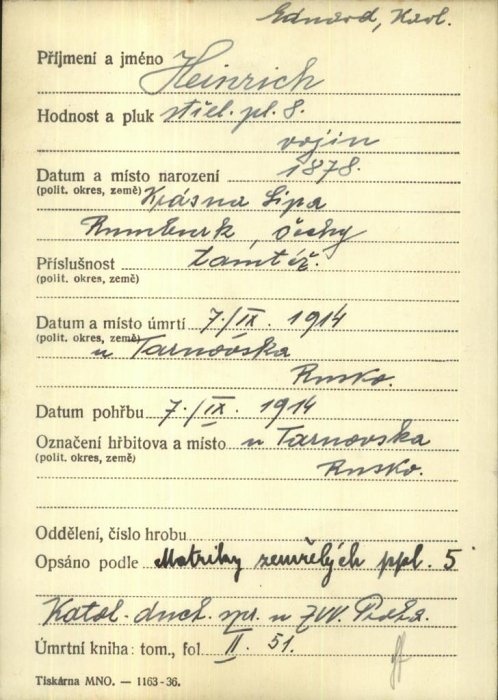 Eduard, Karl.
Příjmení a jméno Heinrich
Hodnost a pluk střel. pl. 8.
vojín
Datum a místo narození 1878.
(polit. okres, země) Krásna Lipa
Rumburk, Čechy
Příslušnost tamtéž.
(polit. okres, země)
Datum a místo úmrtí 7./IX. 1914
(polit. okres, země) u Tarnovska
Rusko.
Datum pohřbu 7./IX. 1914
Označení hřbitova a místo u Tarnovska
(polit. okres, země) Rusko.
Oddělení, číslo hrobu
Opsáno podle Matriky zemřelých ppl. 5
Katol. duch. spr. u ZVV. Praha.
Úmrtní kniha: tom., fol. II. 51.
Tiskárna MNO. — 1163-36.